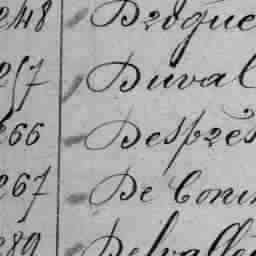 248 Drogue
257 Duval
266 Desprès
267 De Conin
289 Delvallé